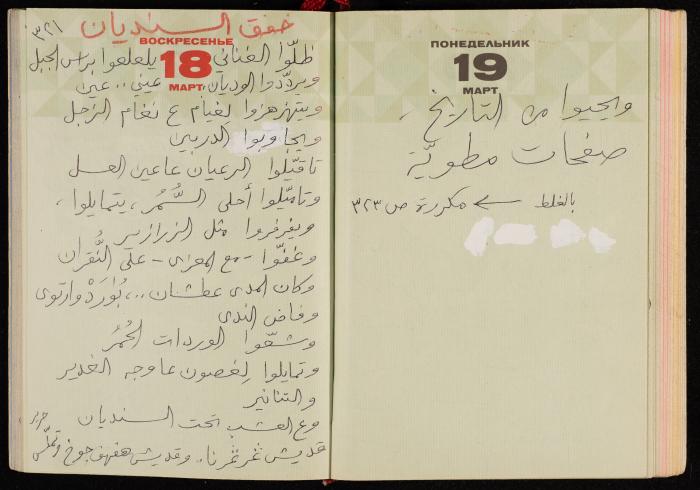 ٣٢١
خفق السنديان
ВОСКРЕСЕНЬЕ
18
МАРТ
طلّوا الغناني يلعلعوا براس الجبل
ويردّدوا الوديان عيني .. عين
ويتهزهزوا لغيام ع نغام الزجل
ويجاوبوا الدربين
تا قيّلوا الرعيان عاعين العسل
وتاميّلوا أحلى السُّمُر ، يتمايلوا ،
ويفرفروا مثل الزرازير
وغفّوا - مع المعزى - على النُّقران
وكان المدى عطشان .. ، بُوارَدْ وارتوى
وفاض الندى
وشعّوا الوردات الحُمُرُ
وتمايلوا لِغصون عاوجه الغدير
والتنانير
وع العشب تحت السنديان
قديش تمرتمرنا .. وقديش هفهف جوخ
حرير
ПОНЕДЕЛЬНИК
19
МАРТ
ويحيوا من التاريخ ،
صفحات مطويّة
بالغلط ← مكررة ص ٣٢٣